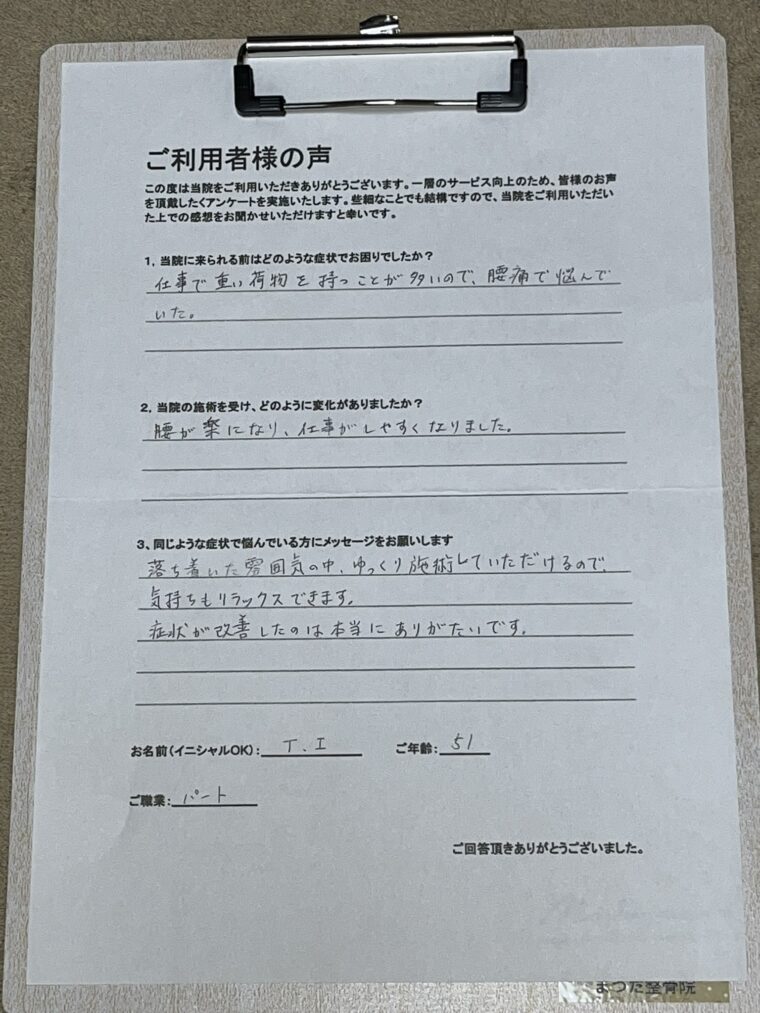 ご利用者様の声
この度は当院をご利用いただきありがとうございます。一層のサービス向上のため、皆様のお声
を頂戴したくアンケートを実施いたします。些細なことでも結構ですので、当院をご利用いただい
た上での感想をお聞かせいただけますと幸いです。
1, 当院に来られる前はどのような症状でお困りでしたか？
仕事で重い荷物を持つことが多いので、腰痛で悩んで
いた。
2, 当院の施術を受け、どのように変化がありましたか？
腰が楽になり、仕事がしやすくなりました。
3、同じような症状で悩んでいる方にメッセージをお願いします
落ち着いた雰囲気の中、ゆっくり施術していただけるので、
気持ちもリラックスできます。
症状が改善したのは本当にありがたいです。
お名前（イニシャルOK）： T.I ご年齢： 51
ご職業： パート
ご回答頂きありがとうございました。
まつだ整骨院